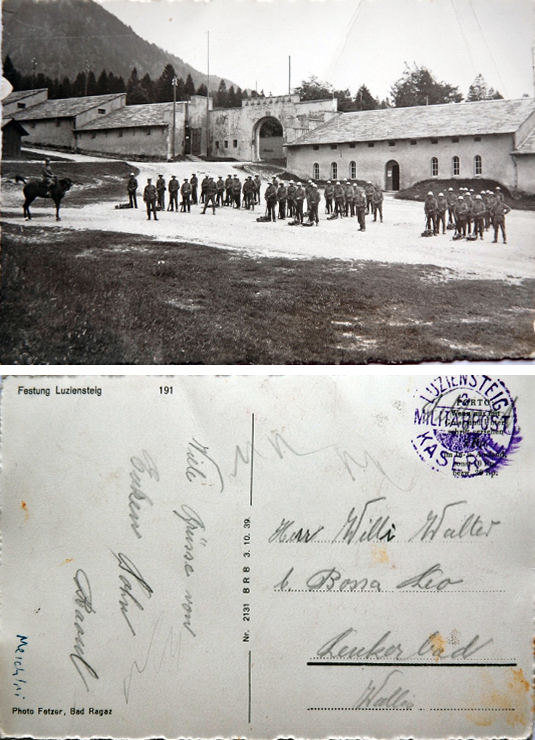 Festung Luziensteig 191
LUZIENSTEIG
MILITÄRPOST
KASERNE
PORTO
Viele Grüsse von
Eurem Sohn
Nr. 2131 B R B 3. 10. 39.
Herr Willi Walter
b. Bossa Leo
Leukerbad
Wallis
Photo Fetzer, Bad Ragaz